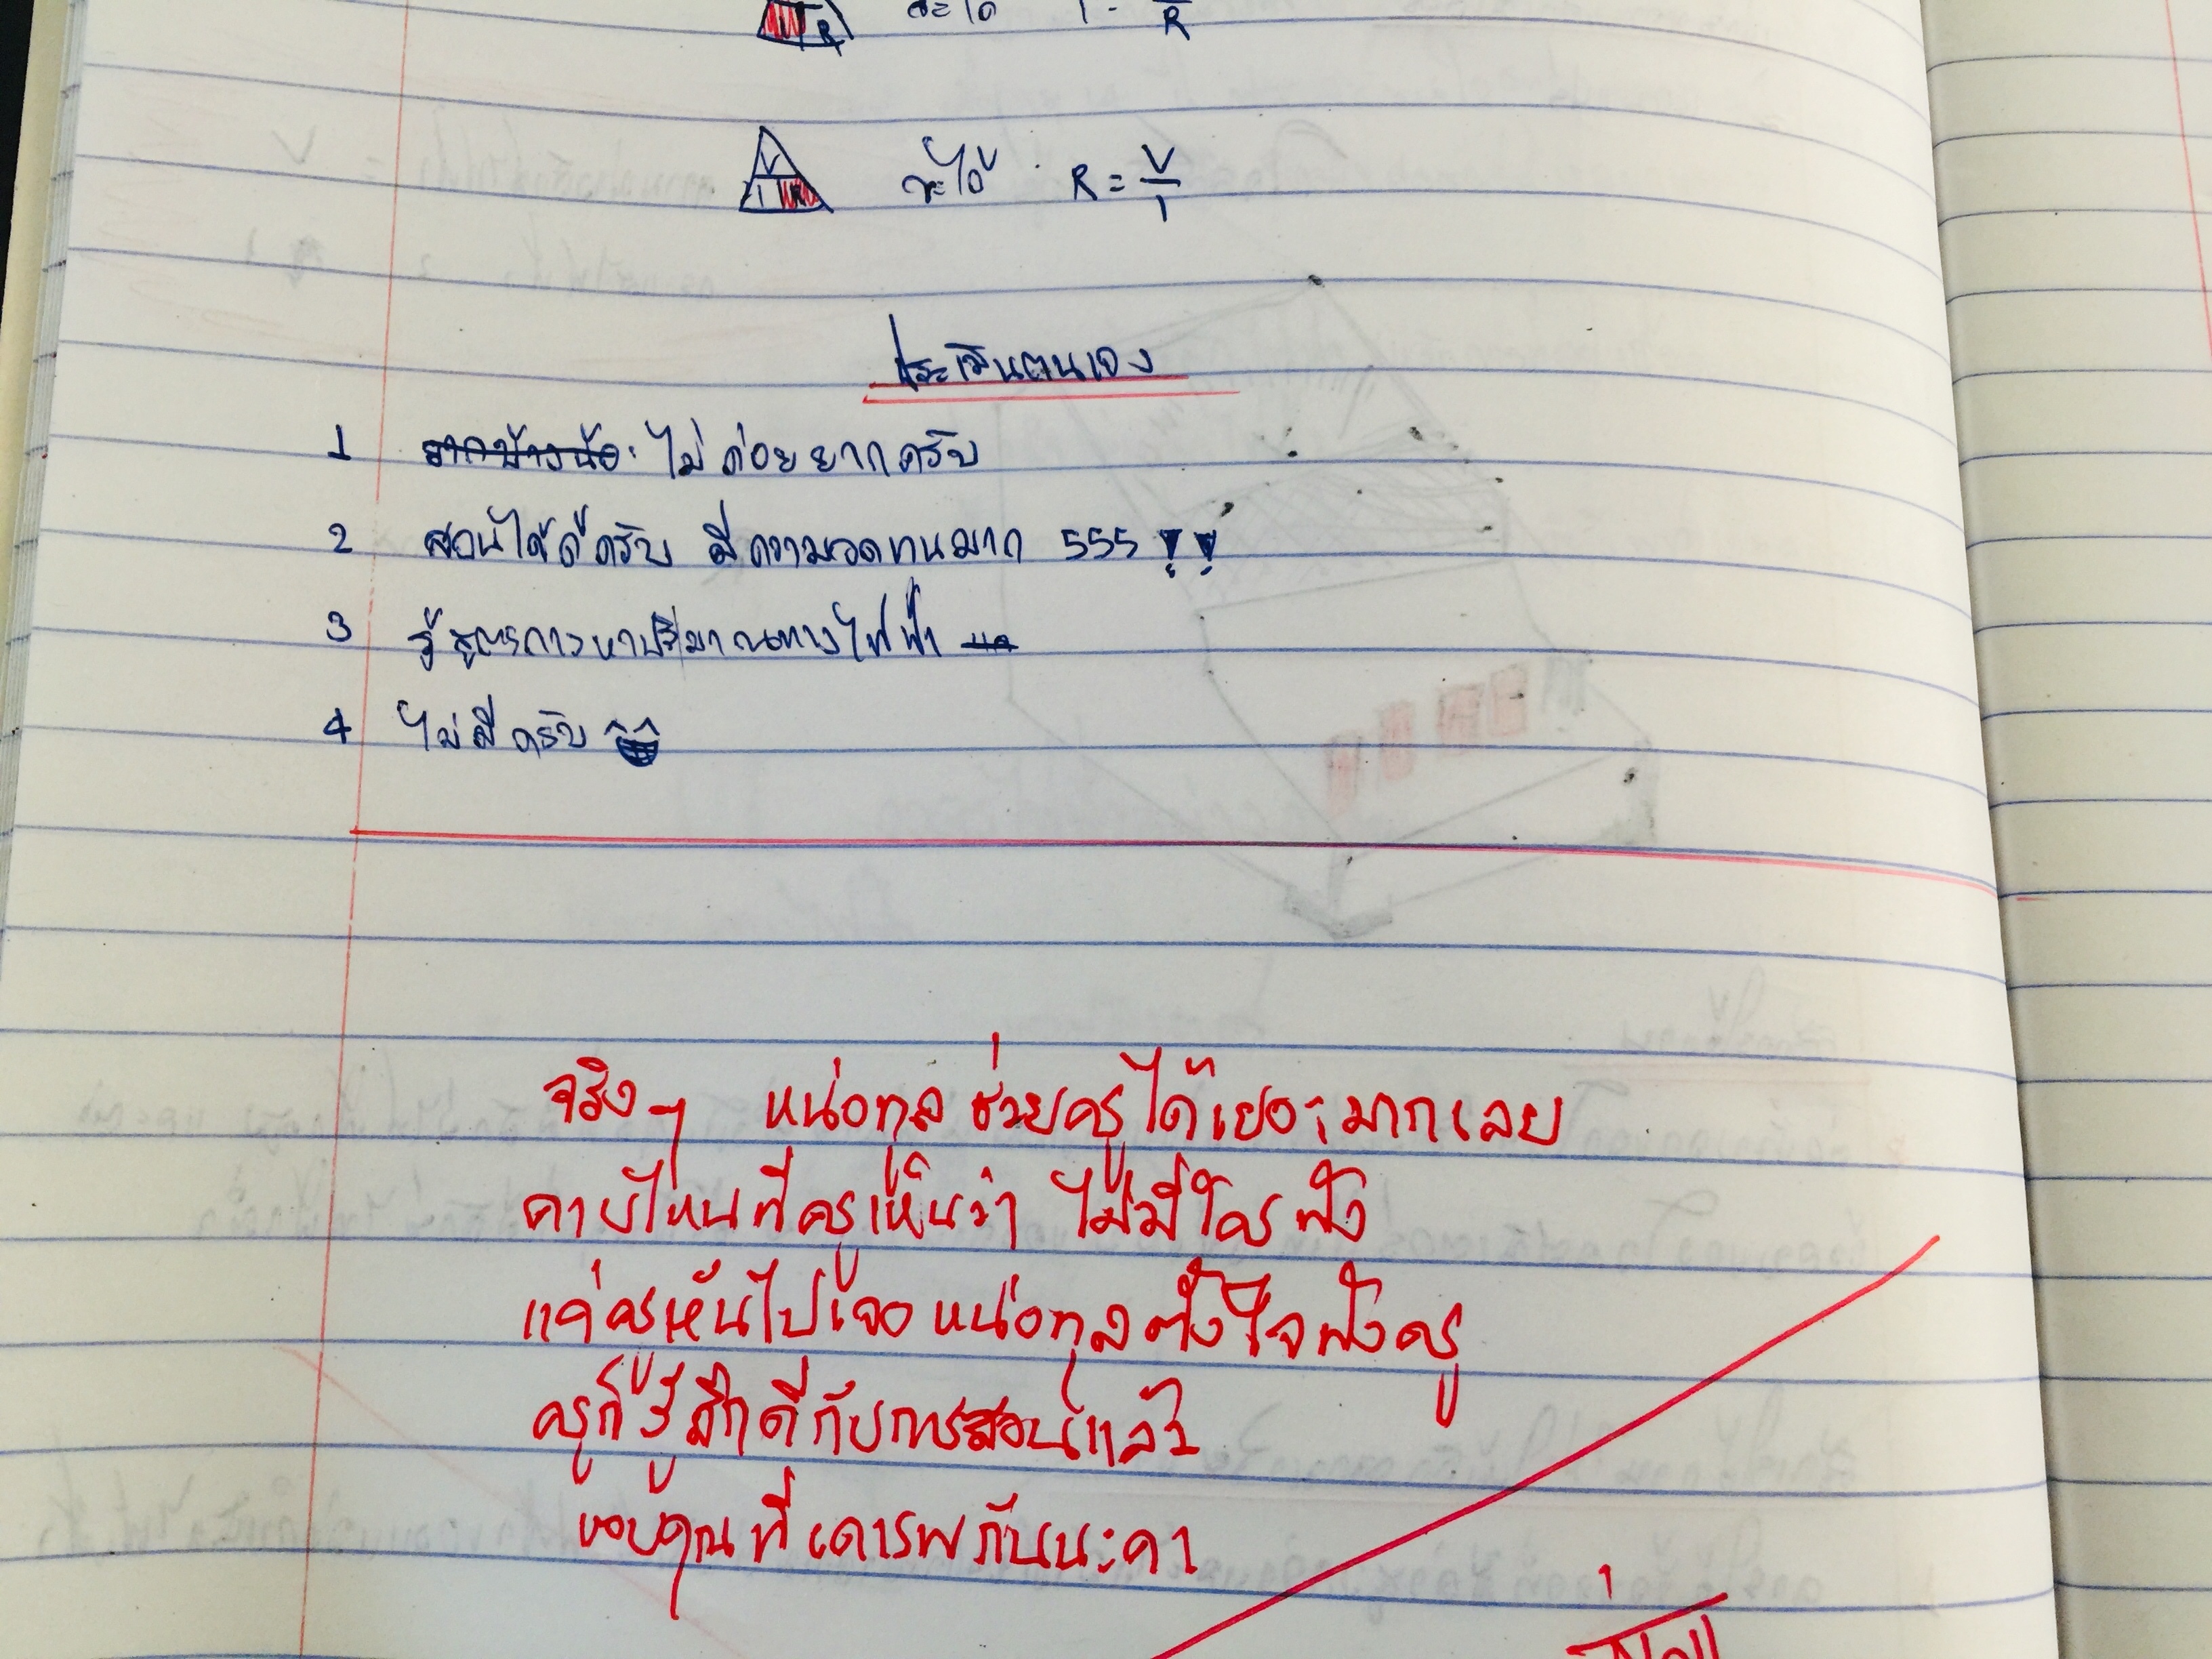 จะได้ I = V/R
V I R จะได้ R = V/I
ประเมินตนเอง
1 ไม่ค่อยยากครับ
2 สอนได้ดีครับ มีความอดทนมาก 555 !!
3 รู้สูตรการหาปริมาณทางไฟฟ้า
4 ไม่มีครับ
จริงๆ หน่อทูล ช่วยครูได้เยอะมากเลย
คาบไหนที่ครูเห็นว่า ไม่มีใครฟัง
แค่ครูหันไปเจอ หน่อทูลตั้งใจฟังครู
ครูก็รู้สึกดีกับการสอนแล้ว
ขอบคุณที่เคารพกันนะคะ